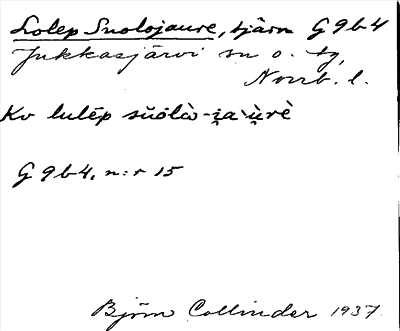 Lolep Suolojaure, tjärn G 9 b 4
Jukkasjärvi sn o. tg,
Norrb. l.
Kv lulēp sŭölὼ-i̯a`ṷ̀rè
G 9 b 4, n:r 15
Björn Collinder 1937.